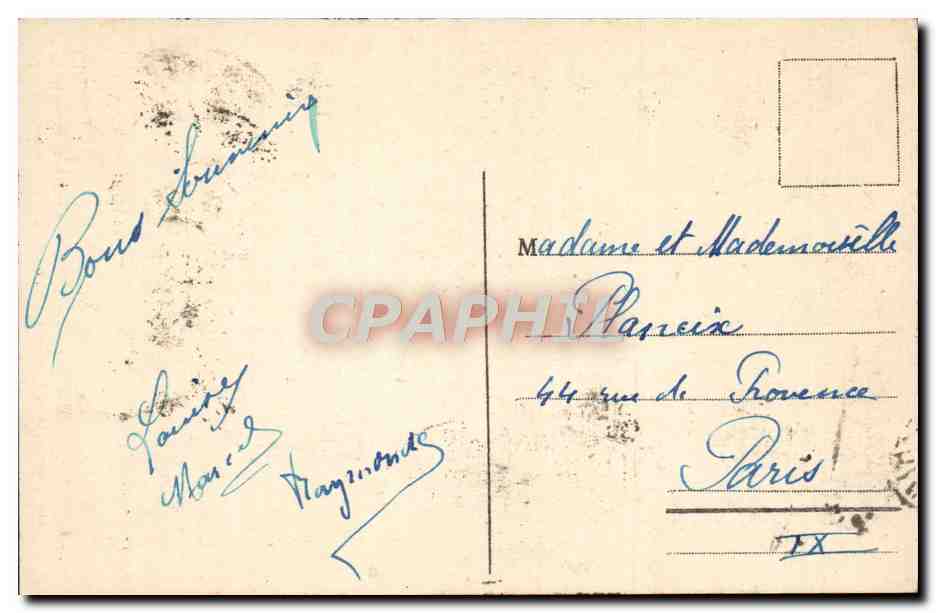 Bons Souvenirs
Louise
Marcel
Raymonde
Madame et Mademoiselle
Planeix
44 rue de Provence
Paris
IX
CPAPHIL